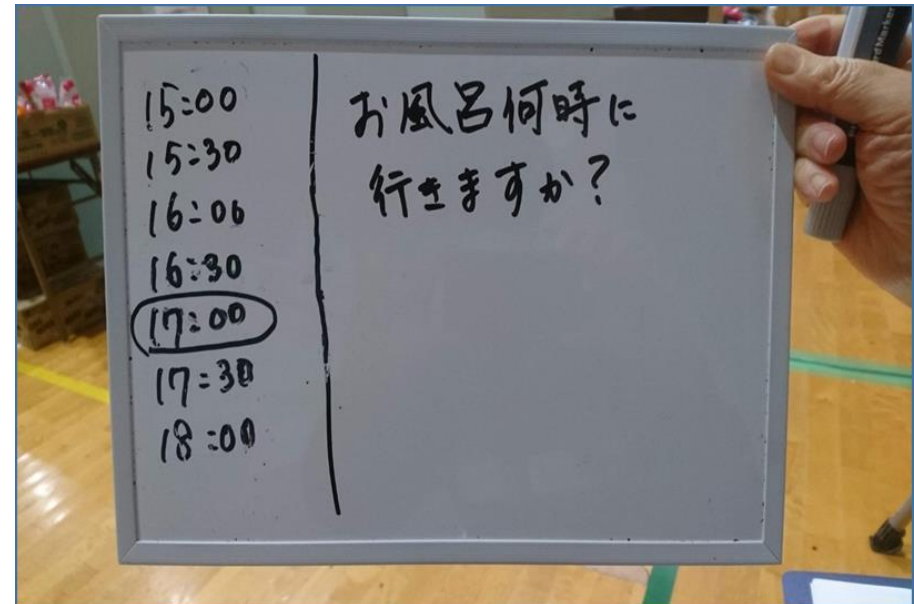 15:00
15:30
16:00
16:30
17:00
17:30
18:00
お風呂何時に
行きますか？